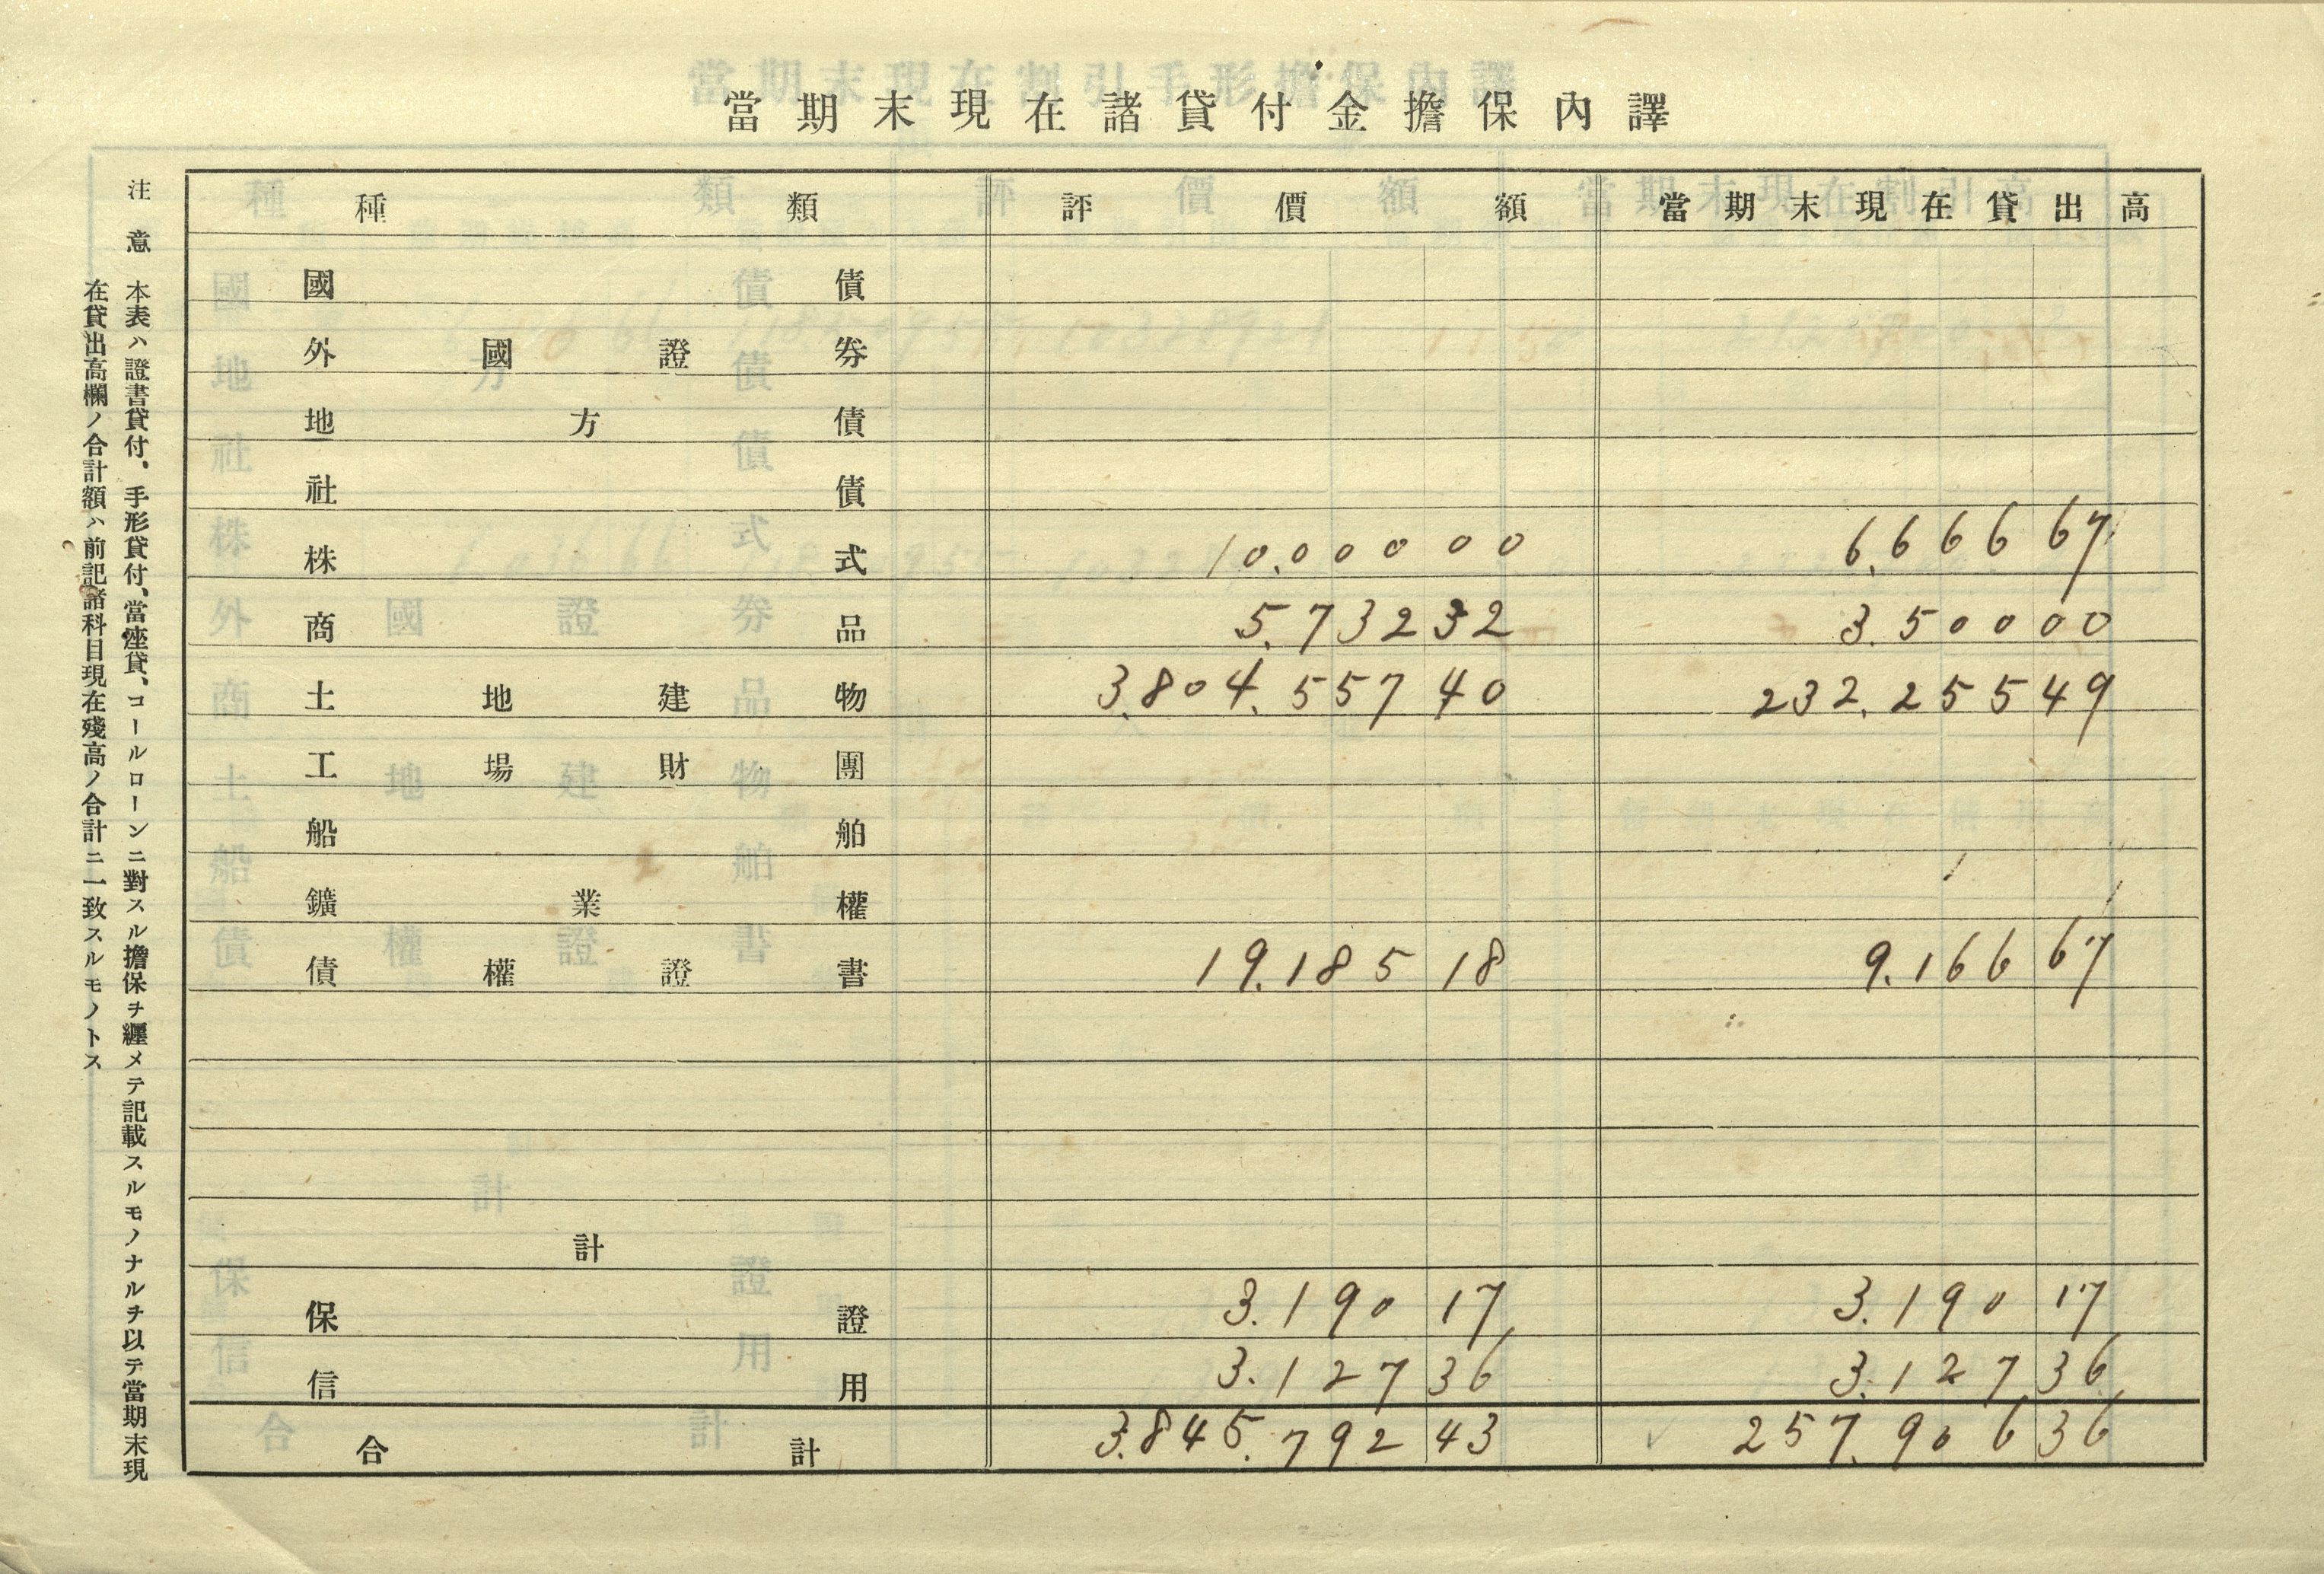 當期末現在諸貸付金擔保內譯
種類 評價額 當期末現在貸出高
國債
外國證券
地方債
社債
株式 10.000 00 6.666 67
商品 5.732 32 3.500 00
土地建物 3.804.557 40 232.255 49
工場財團
船舶
鑛業權
債權證書 19.185 18 9.166 67
計
保證 3.190 17 3.190 17
信用 3.127 36 3.127 36
合計 3.845.792 43 257.906 36
注意 本表ハ證書貸付、手形貸付、當座貸、コールローンニ對スル擔保ヲ纒メテ記載スルモノナルヲ以テ當期末現
在貸出高欄ノ合計額ハ前記諸科目現在殘高ノ合計ニ一致スルモノトス